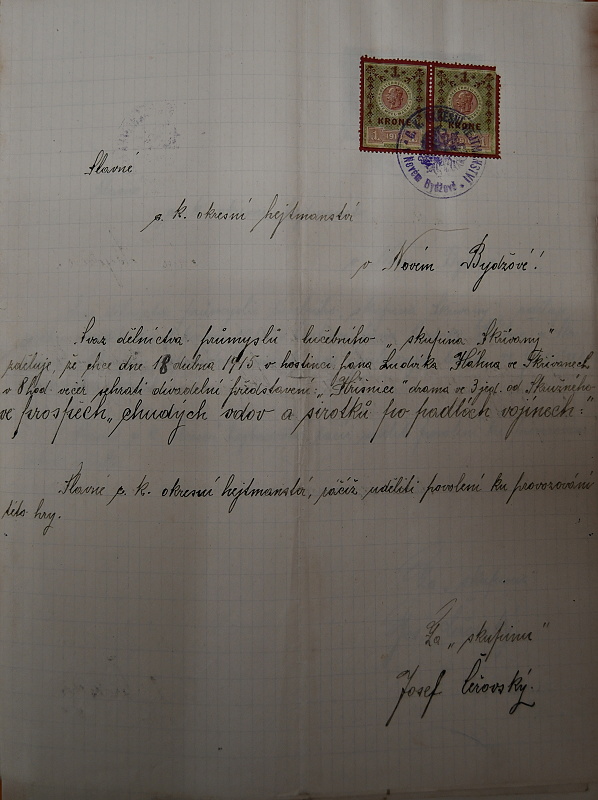 1 1
KRONE KRONE
1
Novém Bydžově
Slavné
c. k. okresní hejtmanství
v Novém Bydžově!
Svaz dělnictva průmyslů lučebního „skupina Skřivany"
zděluje, že chce dne 18 dubna 1915 v hostinci pana Ludvíka Hähna ve Skřivanech
v 8 hod večer sehrati divadelní představení: „Hříšnice" drama ve 3 jed. od
ve prospěch „chudých vdov a sirotků po padlých vojínech:"
Slavné c. k. okresní hejtmanství, račiž uděliti povolení ku provozování
této hry.
Za „skupinu"
Josef Čeřovský.